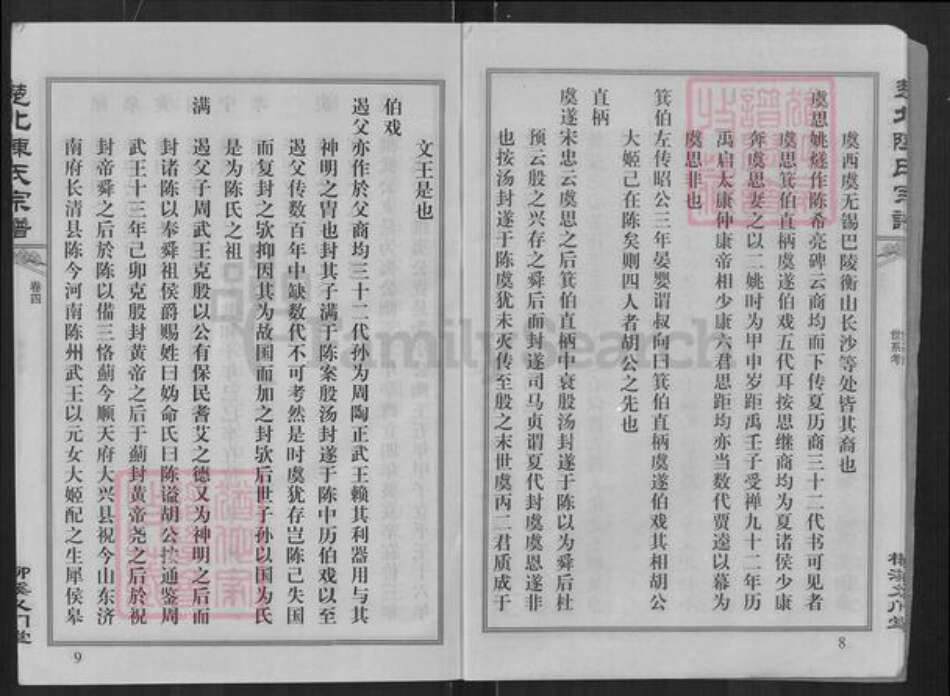 楚北陈氏宗谱
世系考
虞西虞无锡巴陵衡山长沙等处皆其裔也
虞思姚燧作陈希亮碑云商均而下传夏历商三十二代书可见者
虞思箕伯直柄虞遂伯戏五代耳按思继商均为夏诸侯少康
奔虞思妻之以二姚时为甲申岁距禹壬子受禅九十二年历
禹启太康仲康帝相少康六君思距均亦当数代贾逵以幕为
虞思非也
箕伯左传昭公三年晏婴谓叔向曰箕伯直柄虞遂伯戏其相胡公
大姬己在陈矣则四人者胡公之先也
直柄
虞遂宋忠云虞思之后箕伯直柄中衰殷汤封遂于陈以为舜后杜
预云殷之兴存之舜后而封遂司马贞谓夏代封虞虞恩遂非
也按汤封遂于陈虞犹未灭传至殷之末世虞丙二君质成于
8
文王是也
伯戏
遏父亦作於父商均三十二代孙为周陶正武王赖其利器用与其
神明之胄也封其子满于陈案殷汤封遂于陈中历伯戏以至
遏父传数百年中缺数代不可考然是时虞犹存岂陈己失国
而复封之欤抑因其为故国而加之封欤后世子孙以国为氏
是为陈氏之祖
满 遏父子周武王克殷以公有保民耆艾之德又为神明之后而
封诸陈以奉舜祖侯爵赐姓曰妫命氏曰陈谥胡公按通鉴周
武王十三年己卯克殷封黄帝之后于蓟封黄帝尧之后於祝
封帝舜之后於陈以备三恪蓟今顺天府大兴县祝今山东济
南府长清县陈今河南陈州武王以元女大姬配之生犀侯皋
楚北陈氏宗谱
卷四
柳溪义门堂
9
FamilySearch